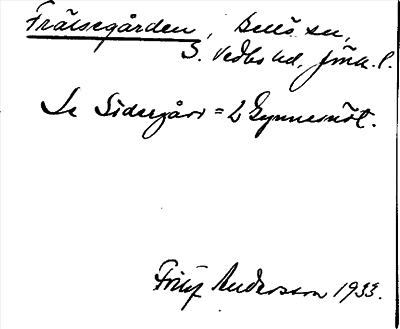 Frälsegården, Bellö sn,
S. Vedbo hd, Jönk. l.
Se Södergård = L Gynnesnöt.
Fritz Andersson 1933.